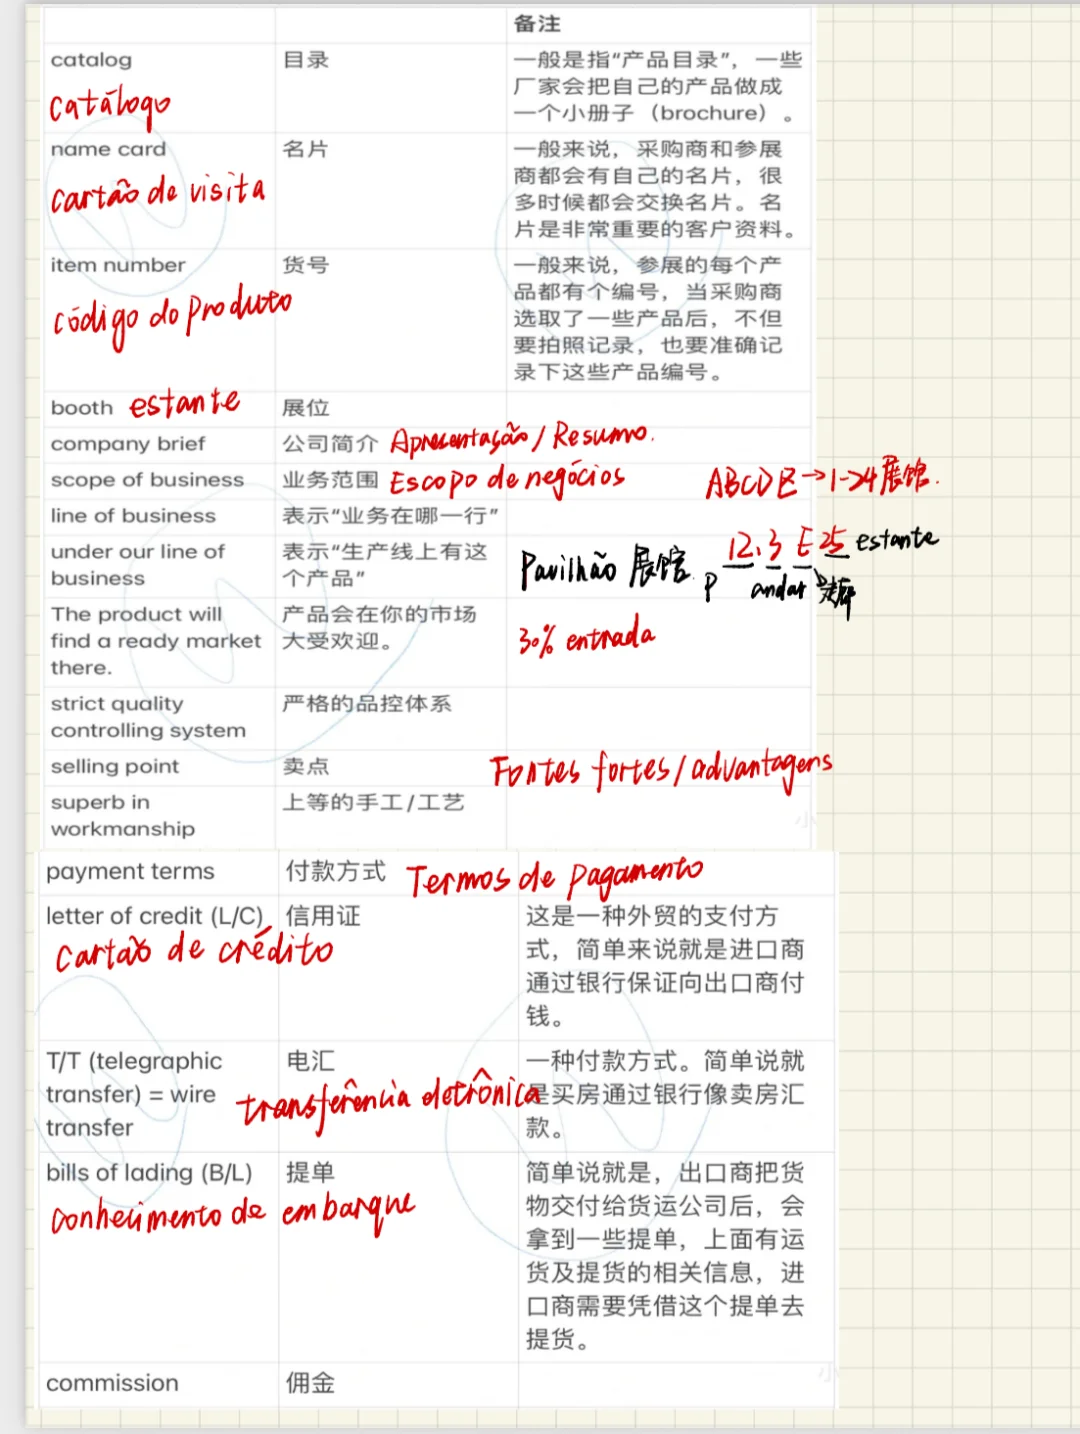 备注
catalog 目录 一般是指“产品目录”，一些
厂家会把自己的产品做成
catálogo
一个小册子（brochure）。
name card 名片 一般来说，采购商和参展
商都会有自己的名片，很
cartão de visita
多时候都会交换名片。名
片是非常重要的客户资料。
item number 货号 一般来说，参展的每个产
品都有个编号，当采购商
código do produto
选取了一些产品后，不但
要拍照记录，也要准确记
录下这些产品编号。
booth estante 展位
company brief 公司简介 Apresentação / Resumo.
scope of business 业务范围 Escopo de negócios
ABCDE→1-24展馆.
line of business 表示“业务在哪一行”
under our line of
business
表示“生产线上有这
个产品”
Pavilhão 展馆. P 12.3 E 25 estante
andar
The product will
find a ready market
there.
产品会在你的市场
大受欢迎。
30% entrada
strict quality
controlling system
严格的品控体系
selling point 卖点 Fontes fortes / advantagens
superb in
workmanship
上等的手工/工艺
payment terms 付款方式 Termos de pagamento
letter of credit (L/C) 信用证 这是一种外贸的支付方
式，简单来说就是进口商
cartão de crédito
通过银行保证向出口商付
钱。
T/T (telegraphic
transfer) = wire
transfer
电汇
transferência eletrônica
一种付款方式。简单说就
是买房通过银行像卖房汇
款。
bills of lading (B/L) 提单
conhecimento de embarque
简单说就是，出口商把货
物交付给货运公司后，会
拿到一些提单，上面有运
货及提货的相关信息，进
口商需要凭借这个提单去
提货。
commission 佣金